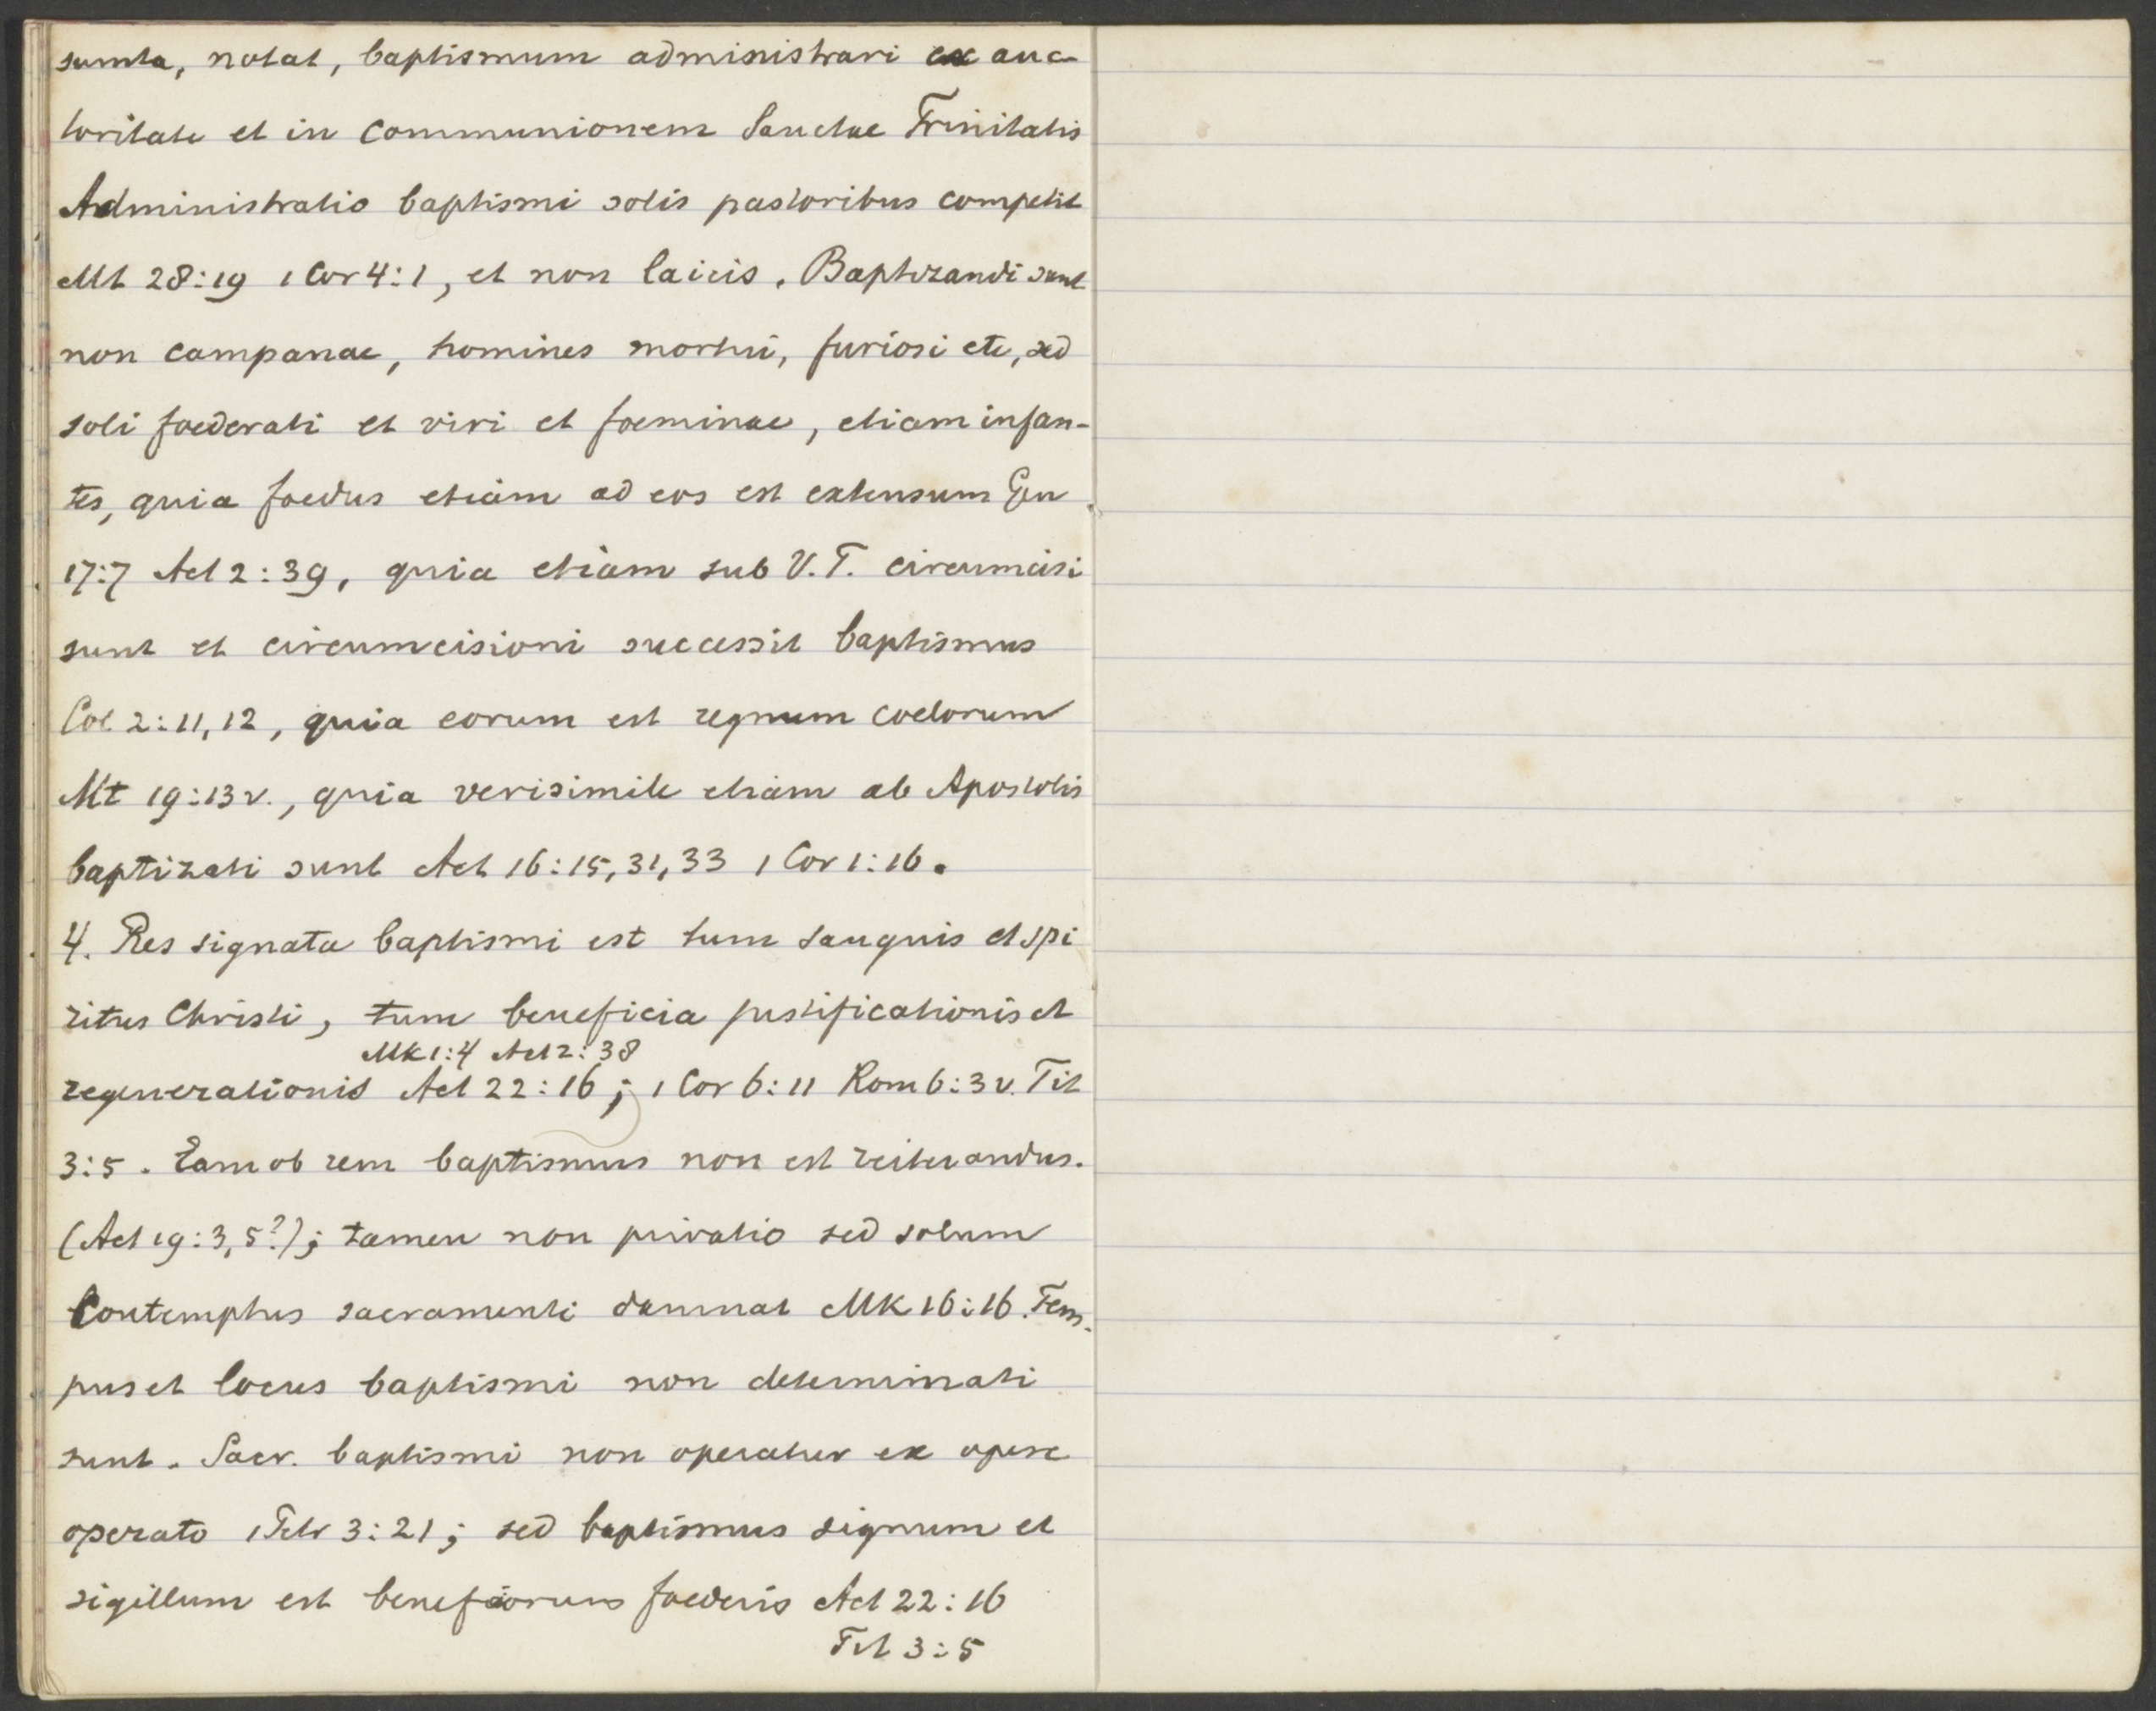 sumta, notat, baptismum administrari ex auc-
toritate et in communionem Sanctae Trinitatis
Administratio baptismi solis pastoribus competit
Mt 28:19 1 Cor 4:1, et non laicis. Baptizandi sunt
non campanae, homines mortui, furiosi etc, sed
soli foederati et viri et foeminae, etiam infan-
tes, quia foedus etiam ad eos est extensum Gen
17:7 Act 2:39, quia etiam sub V.T. circumcisi
sunt et circumcisioni successit baptismus
Col 2:11,12, quia eorum est regnum coelorum
Mt 19:13v., quia verisimile etiam ab Apostolis
baptizati sunt Act 16:15,31,33 1 Cor 1:16.
4. Res signata baptismi est tum sanguis et spi
ritus Christi, tum beneficia justificationis et
Mk 1:4 Act 2:38
regenerationis Act 22:16; 1 Cor 6:11 Rom 6:3v. Tit
3:5. Eam ob rem baptismus non est reiterandus.
(Act 19:3,5?); tamen non privatio sed solum
Contemptus sacramenti damnat Mk 16:16. Tem-
pus et locus baptismi non determinati
sunt. Sacr. baptismi non operatur ex opere
operato 1 Petr 3:21; sed baptismus signum et
sigillum est beneficiorum foederis Act 22:16
Tit 3:5